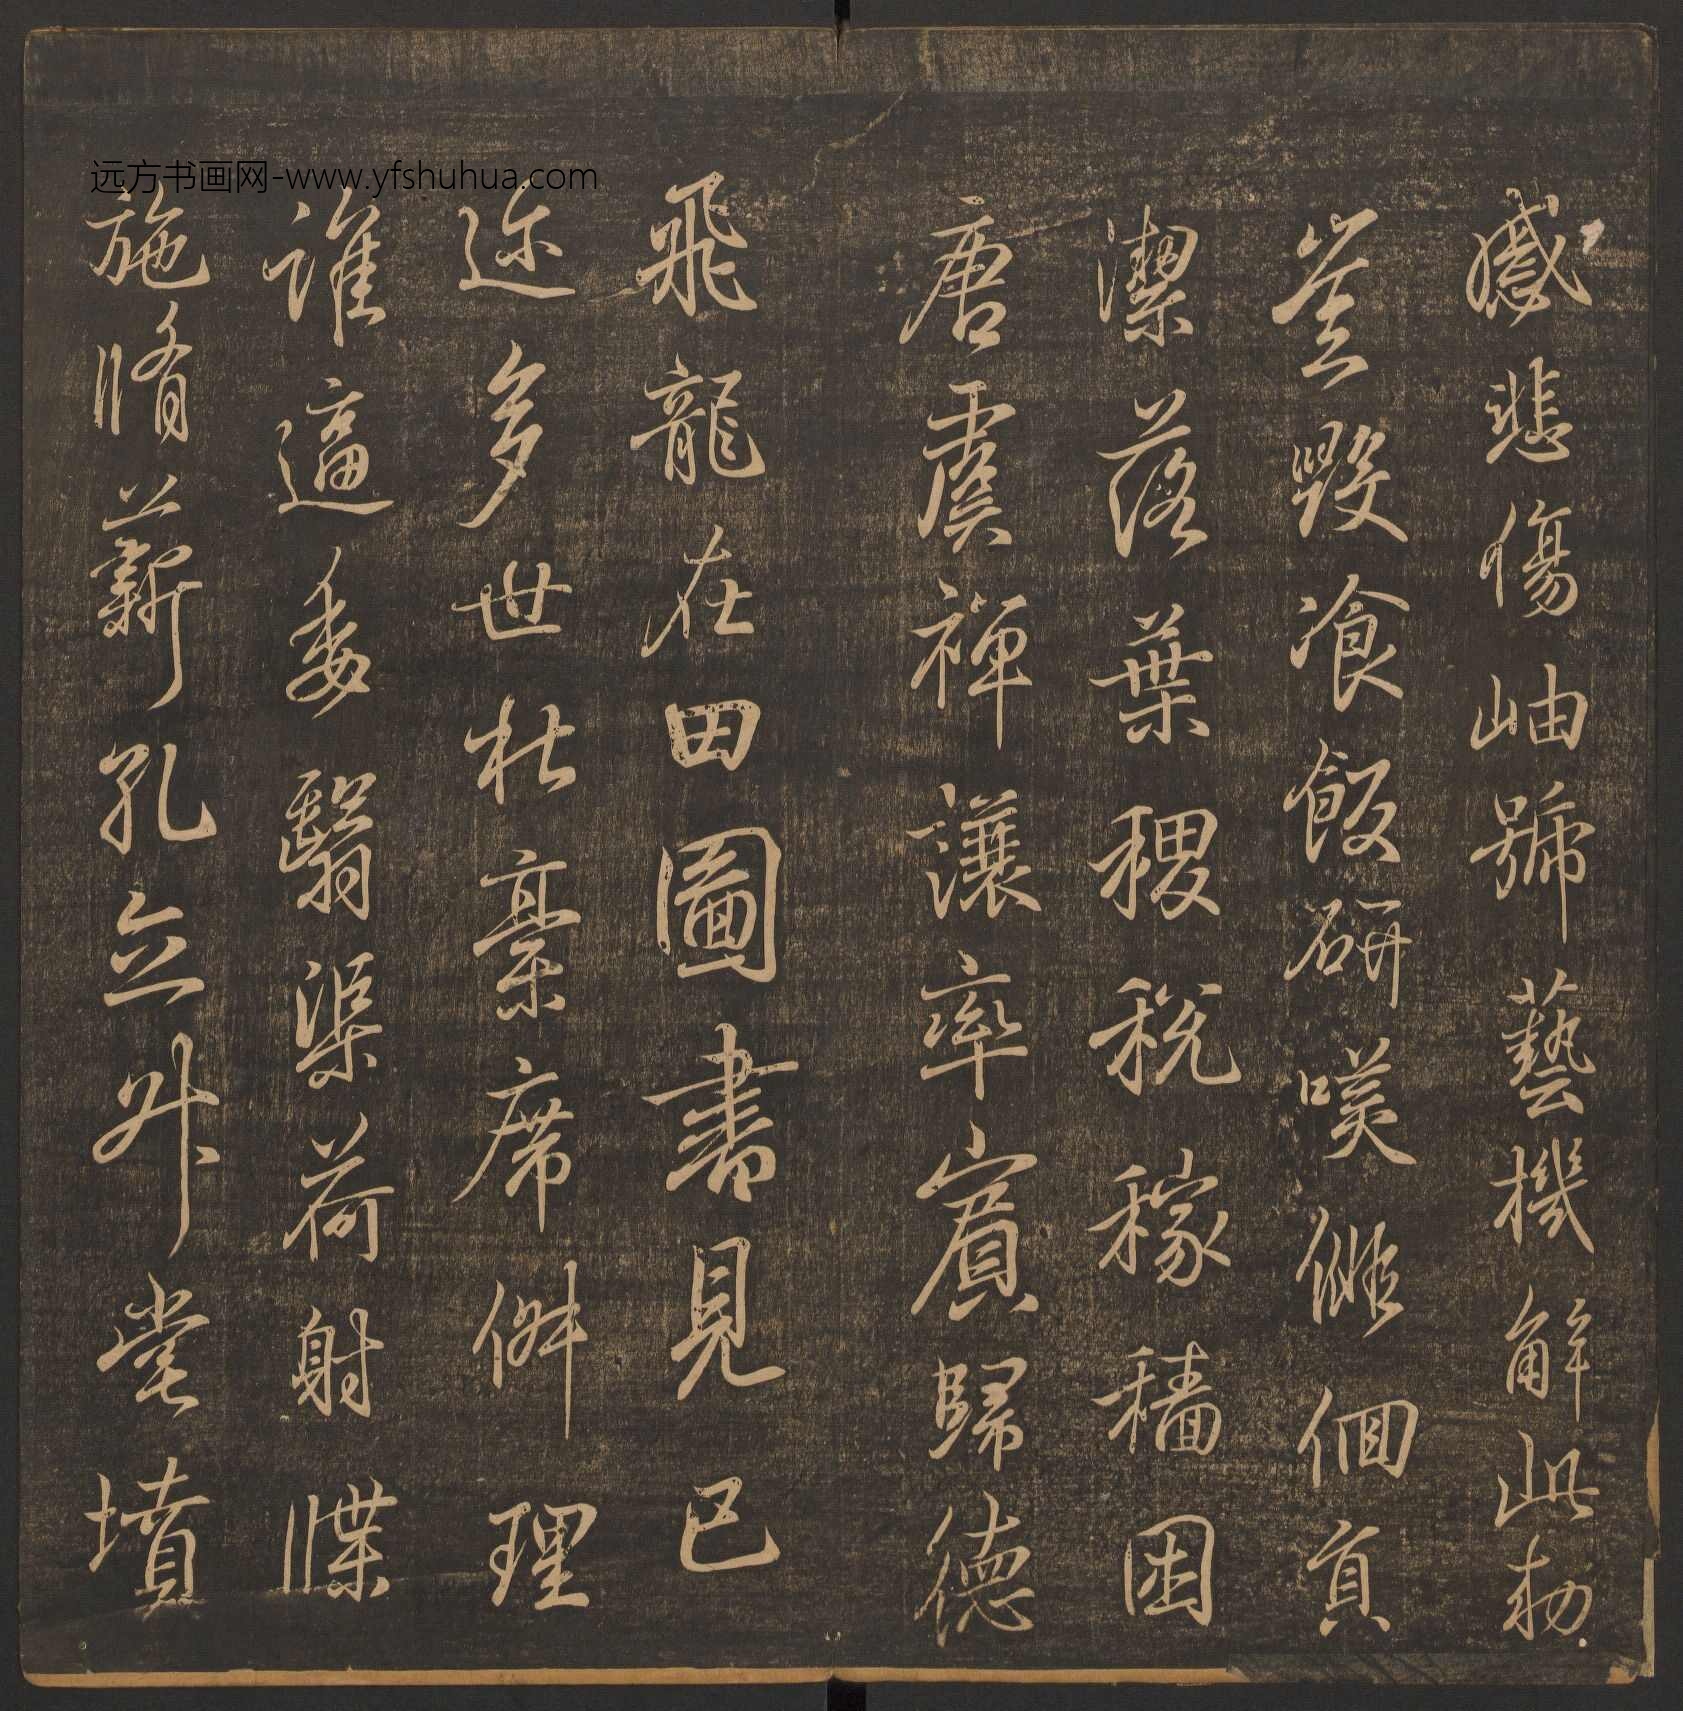 感悲傷岫號藝機解此勑
登毀飡飯研唉修個貢
潔落葉稷稅稼穡困
唐虞禪讓率賓歸德
飛龍在田圖書見已
迩多世杜稾席併理
誰逼委翳渠荷射牒
施脩薪孔立外堂墳
远方书画网-www.yfshuhua.com